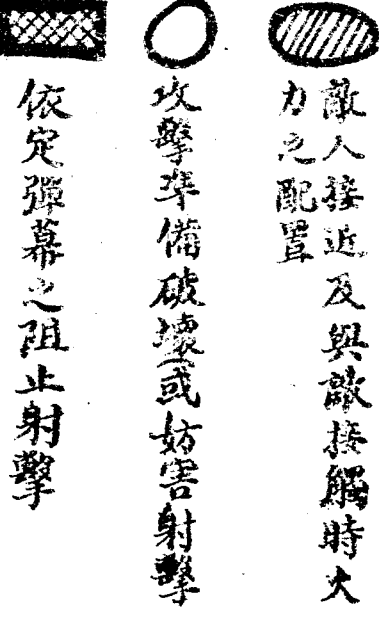 敵人接近及與敵接觸時火
力之配置
攻擊準備破壞(或妨害射擊
依定彈幕之阻止射擊